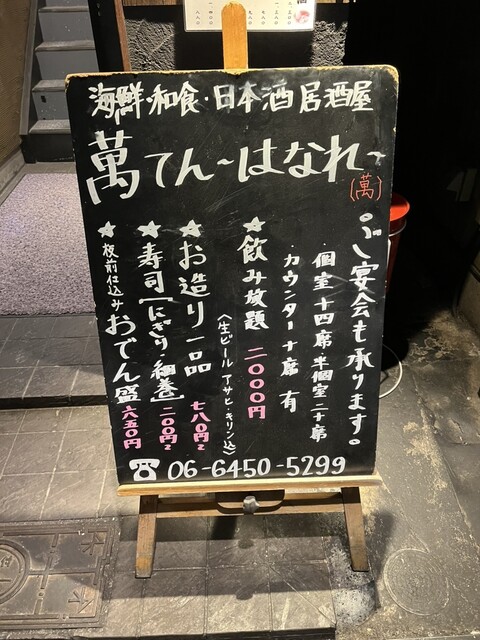 海鮮・和食・日本酒居酒屋
萬てん~はなれ~
(萬)
ご宴会も承ります。
・個室十四席 半個室二十席
・カウンター十席 有
★飲み放題 二〇〇〇円
〈生ビール アサヒ・キリン込〉
★お造り一品 七八〇円〜
★寿司[にぎり・細巻] 二〇〇円〜
★板前仕込みおでん盛 六五〇円
☎ 06-6450-5299